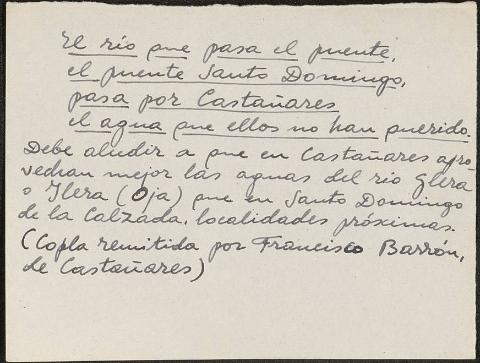 El río que pasa el puente,
el puente Santo Domingo,
pasa por Castañares
el agua que ellos no han querido.
Debe aludir a que en Castañares apro-
vechan mejor las aguas del río Glera
o Ilera (Oja) que en Santo Domingo
de la Calzada, localidades próximas.
(Copla remitida por Francisco Barrón,
de Castañares)